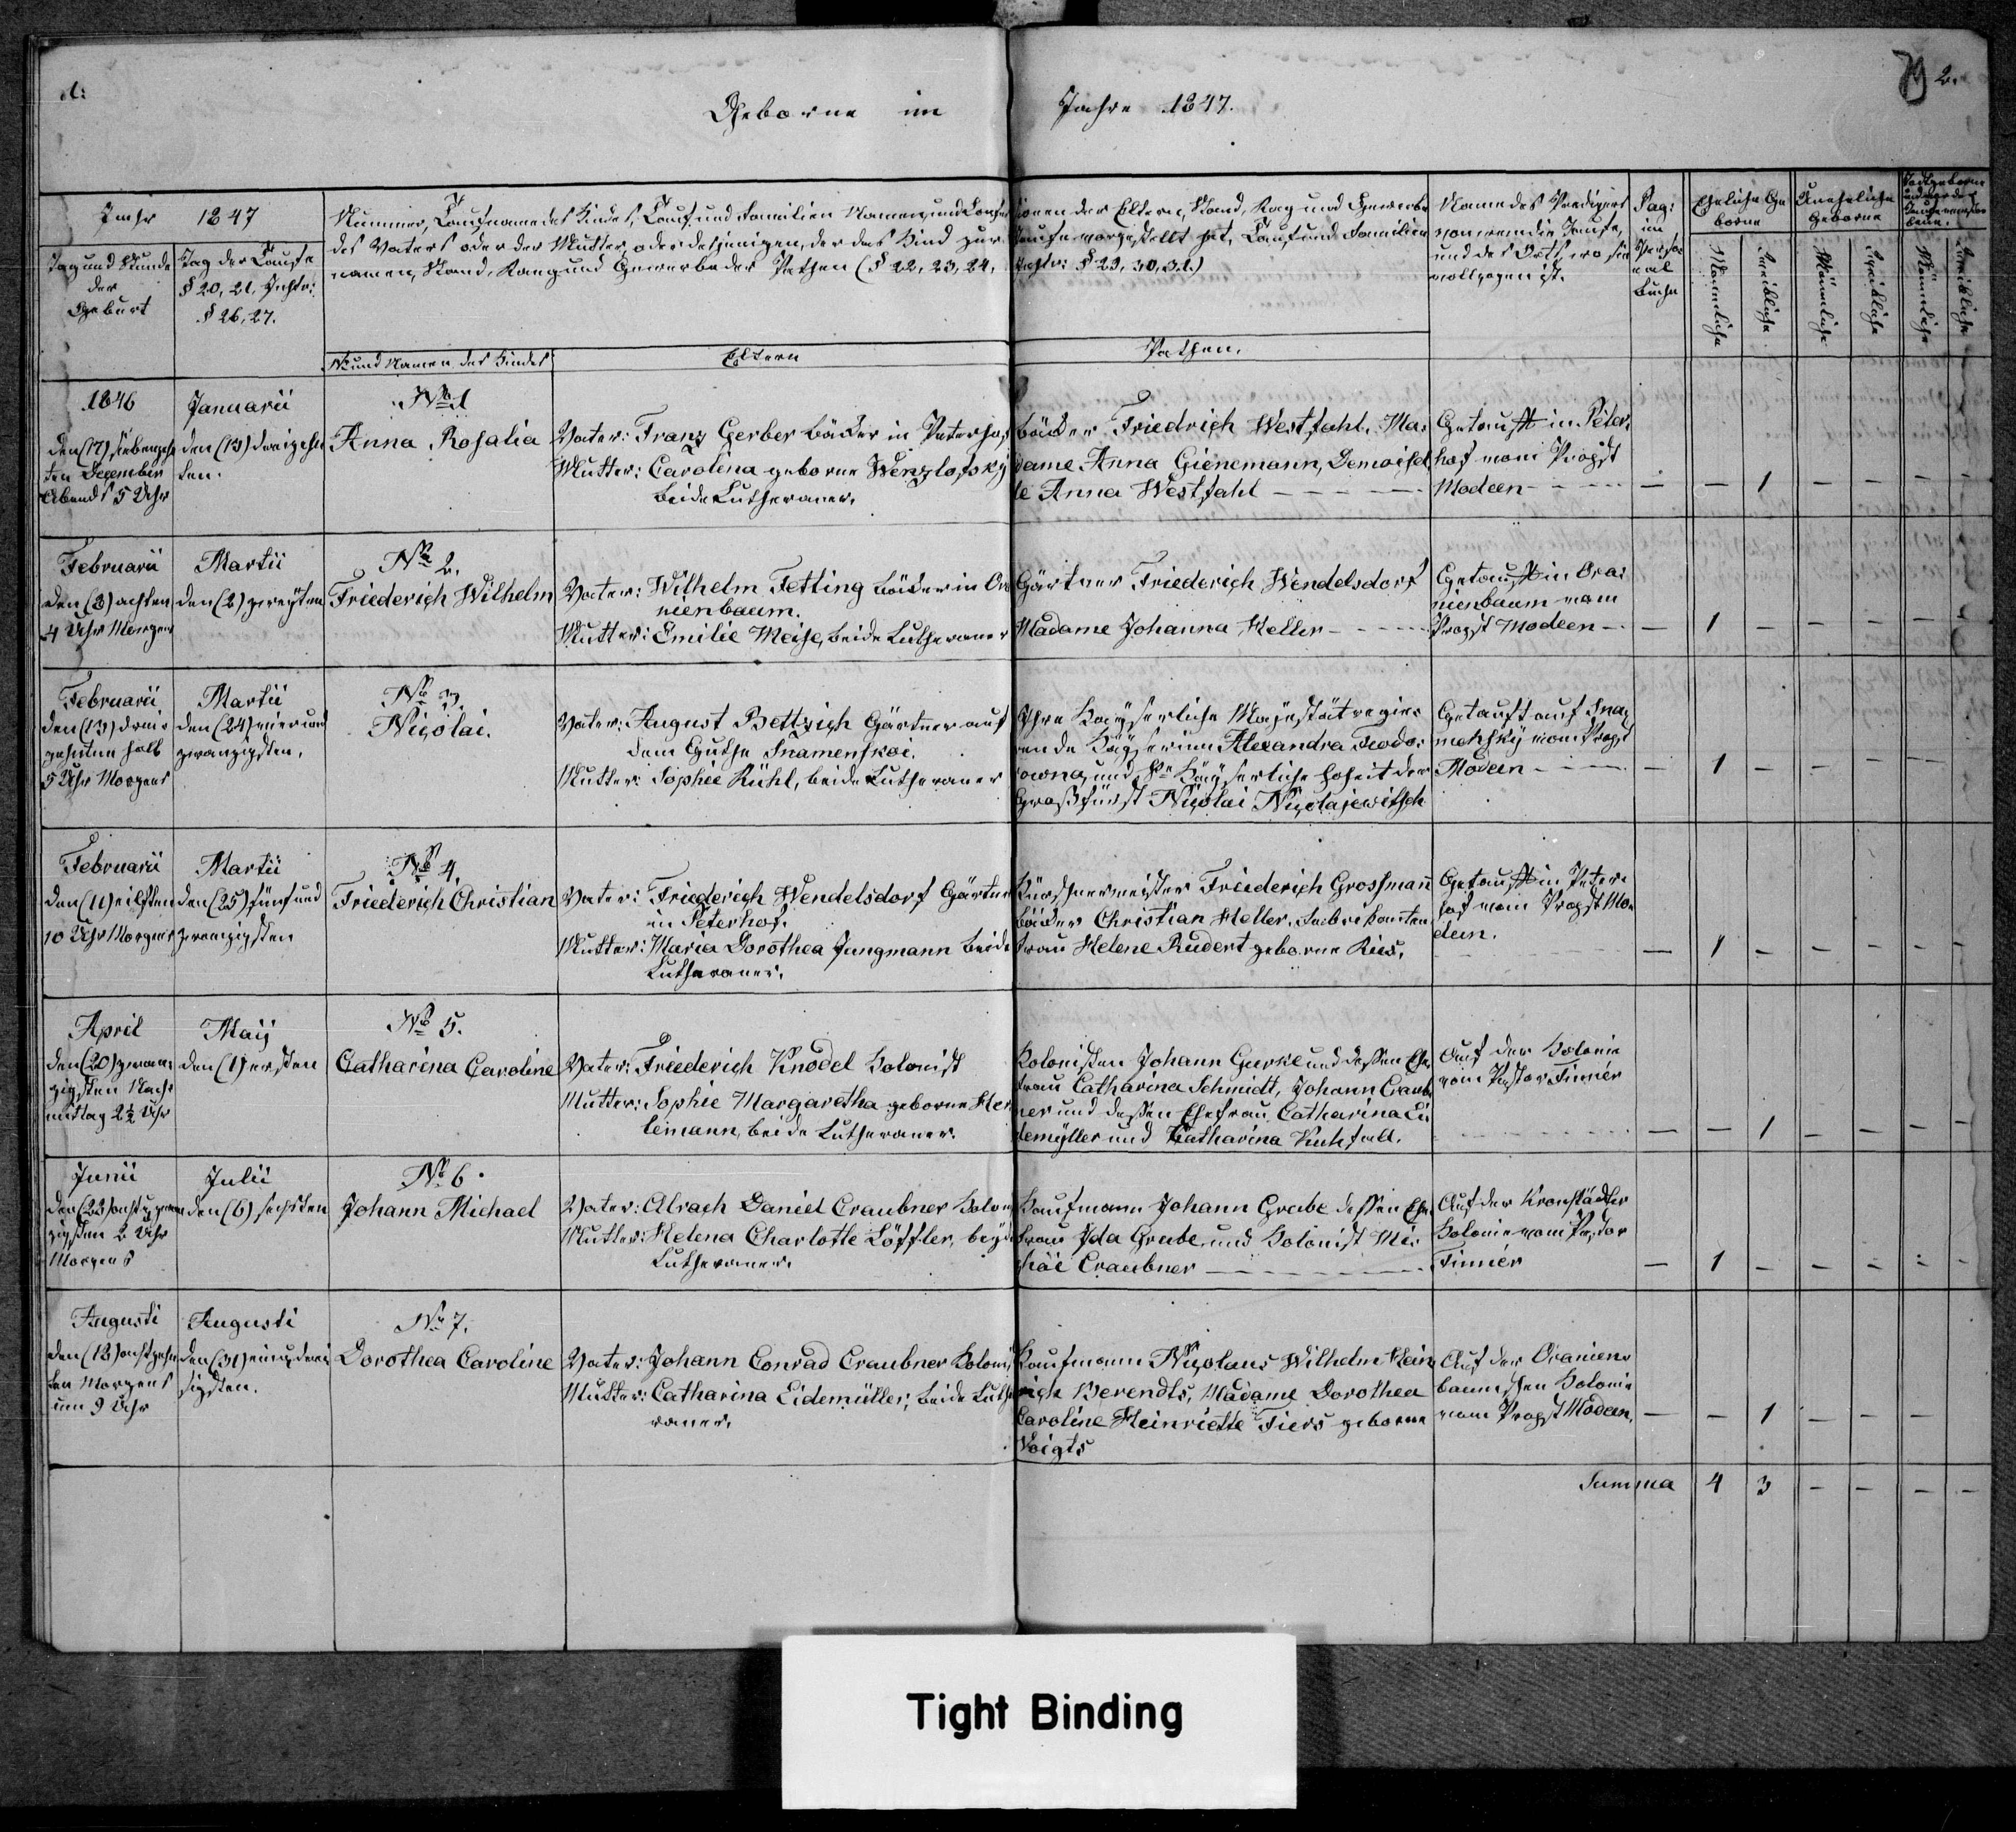 Geborne im Jahre 1847.
2.
Jahr 1847
Tag und Stunde der Geburt
Tag der Taufe § 20, 21, § 26, 27.
Nummer, Taufname des Kindes, Tauf und Familien Namen, und Confessionen der Eltern, Stand, Rang und Gewerbe
des Vaters oder der Mutter, oder desjenigen, der das Kind zur Taufe vorgestellt hat, Tauf und Familien
namen, Stand, Rang und Gewerbe der Pathen (§ 22, 23, 24, § 29, 30, 31.)
No und Namen des Kindes
Eltern
Pathen.
Name des Predigers
von wem die Taufe,
und des Orts, wo sie
vollzogen ist.
Pag:
im
Personal
Buche
Eheliche Geborne
Uneheliche Geborne
Männliche
Weibliche
Männliche
Weibliche
Männliche
Weibliche
1846
den (17) siebenzehn
ten December
Abends 5 Uhr
Januarii
den (13) dreizehn
ten.
No 1
Anna Rosalia
Vater: Franz Gerber Bäcker in Peterhof
Mutter: Carolina geborne Wenzlofsky
beide Lutheraner.
Bäcker Friedrich Westfahl, Ma-
dame Anna Gienemann, Demoisel
le Anna Westfahl
Getauft in Peter
hof vom Propst
Modeen
— — 1 — — — —
Februarii
den (8) achten
4 Uhr Morgens
Martii
den (2) zweyten
No 2.
Friederich Wilhelm
Vater: Wilhelm Fetting Bäcker in Ora
nienbaum.
Mutter: Emilie Meise, beide Lutheraner
Gärtner Friederich Wendelsdorf
Madame Johanna Heller
Getauft in Ora-
nienbaum vom
Propst Modeen
— 1 — — — — —
Februarii
den (13) drei-
zehnten halb
5 Uhr Morgens
Martii
den (24) vier und
zwanzigsten.
No 3.
Nicolai.
Vater: August Bettzich Gärtner auf
dem Guthe Snamenskoe.
Mutter: Sophie Rühl, beide Lutheraner
Ihre Kayserliche Majestät regie-
rende Kayserinn Alexandra Feodo-
rowna, und Se Kayserliche Hoheit der
Großfürst Nicolai Nicolajewitsch
Getauft auf Sna-
mensky vom Propst
Modeen
— 1 — — — — —
Februarii
den (11) eilften
10 Uhr Morgens
Martii
den (25) fünf und
zwanzigsten
No 4.
Friederich Christian
Vater: Friederich Wendelsdorf Gärtner
in Peterhof.
Mutter: Maria Dorothea Jungmann beide
Lutheraner.
Kürschnermeister Friederich Grossmann
Bäcker Christian Heller, Fabrikanten
frau Helene Rudert geborne Ries.
Getauft in Peter-
hof vom Propst Mo-
deen.
— 1 — — — — —
April
den (20) zwan-
zigsten Nach-
mittag 2½ Uhr
Maij
den (1) ersten
No 5.
Catharina Caroline
Vater: Friederich Knodel Kolonist
Mutter: Sophie Margaretha geborne Her
lemann, beide Lutheraner.
Kolonisten Johann Gerke und dessen Ehe
frau Catharina Schmidt, Johann Craub
ner und dessen Ehefrau Catharina Ei
demyller und Katharina Kuhfall.
Auf der Kolonie
vom Pastor Finnér
— — 1 — — — —
Junii
den (28) acht u. zwan
zigsten 2 Uhr
Morgens
Julii
den (6) sechsten
No 6.
Johann Michael
Vater: Alrach Daniel Craubner Kolon
Mutter: Helena Charlotte Löffler, beyde
Lutheraner.
Kaufmann Johann Grabe dessen Ehe
frau Ida Grabe, und Kolonist Mi-
häi Craubner
Auf der Kronstädter
Kolonie vom Pastor
Finnér
— 1 — — — — —
Augusti
den (18) achtzehn
ten Morgens
um 9 Uhr
Augusti
den (31) ein u. drei
sigsten.
No 7.
Dorothea Caroline
Vater: Johann Conrad Craubner Kolonist
Mutter: Catharina Eidemüller, beide Luthe
raner.
Kaufmann Nicolaus Wilhelm Hein
rich Berendts, Madame Dorothea
Caroline Heinriette Fiers geborne
Voigts
Auf der Oranien-
baumschen Kolonie
vom Propst Modeen.
— — 1 — — —
Summa 4 3 — — — —
Tight Binding